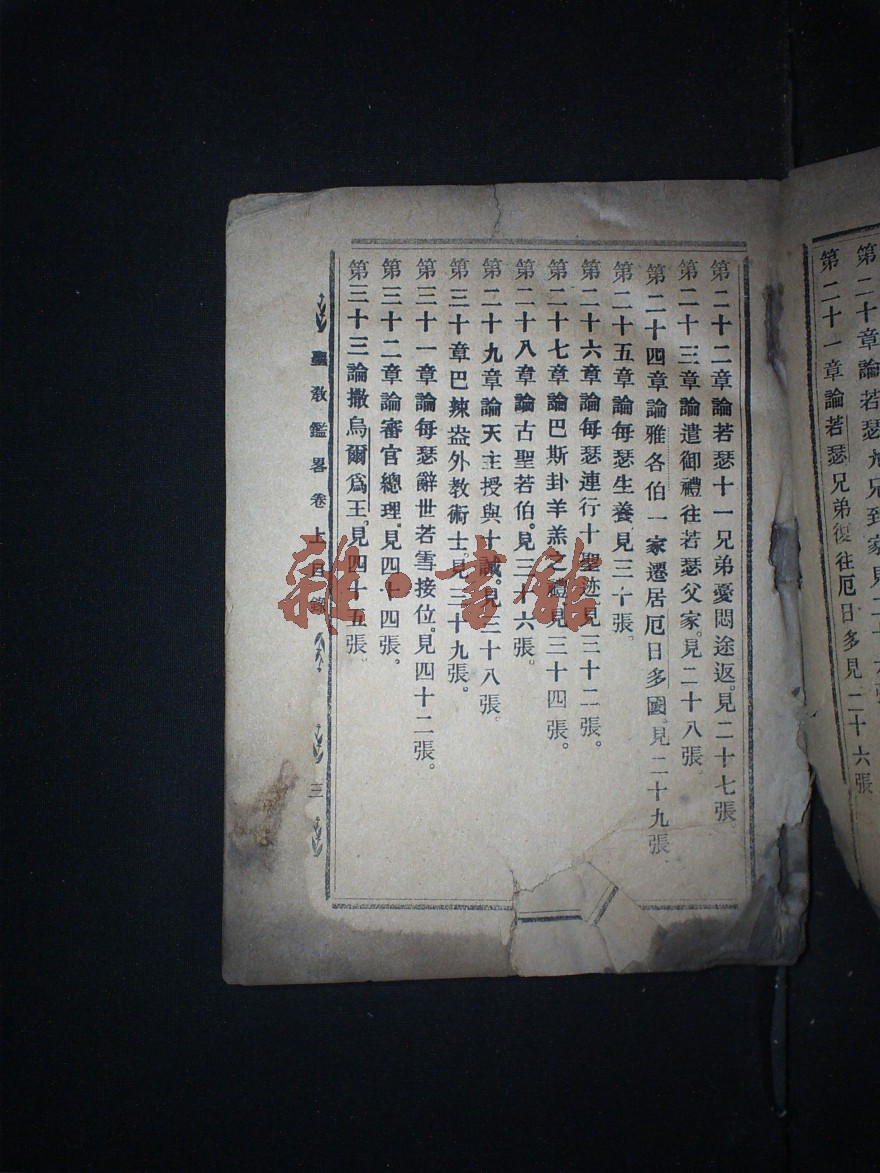 第二十章論若瑟
第二十一章論若瑟兄弟復往厄日多見二十六張
第二十二章論若瑟十一兄弟憂悶途返。見二十七張。
第二十三章論遣御禮往若瑟父家。見二十八張。
第二十四章論雅各伯一家遷居厄日多國。見二十九張。
第二十五章論每瑟生養。見三十張。
第二十六章論每瑟連行十聖迹見三十二張。
第二十七章論巴斯卦羊羔之禮見三十四張。
第二十八章論古聖若伯。見三十六張。
第二十九章論天主授與十誡。見三十八張。
第三十章巴辣盎外教術士。見三十九張。
第三十一章論每瑟辭世若雪接位。見四十二張。
第三十二章論審官總理。見四十四張。
第三十三論撒烏爾爲王。見四十五張。
聖教鑑畧卷上目錄
三
雜·書館